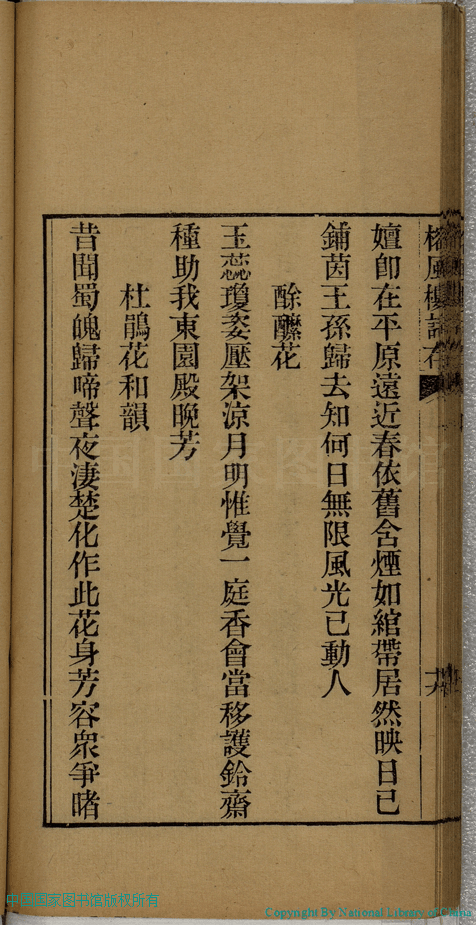 榕風樓詩存
嬗卽在平原遠近春依舊含煙如綰帶居然映日已
鋪茵王孫歸去知何日無限風光已動人
酴醾花
玉蕊瓊姿壓架涼月明惟覺一庭香會當移護鈴齋
種助我東園殿晚芳
杜鵑花和韻
昔聞蜀魄歸啼聲夜淒楚化作此花身芳容衆爭睹
中国国家图书馆版权所有
Copyright By National Library of China